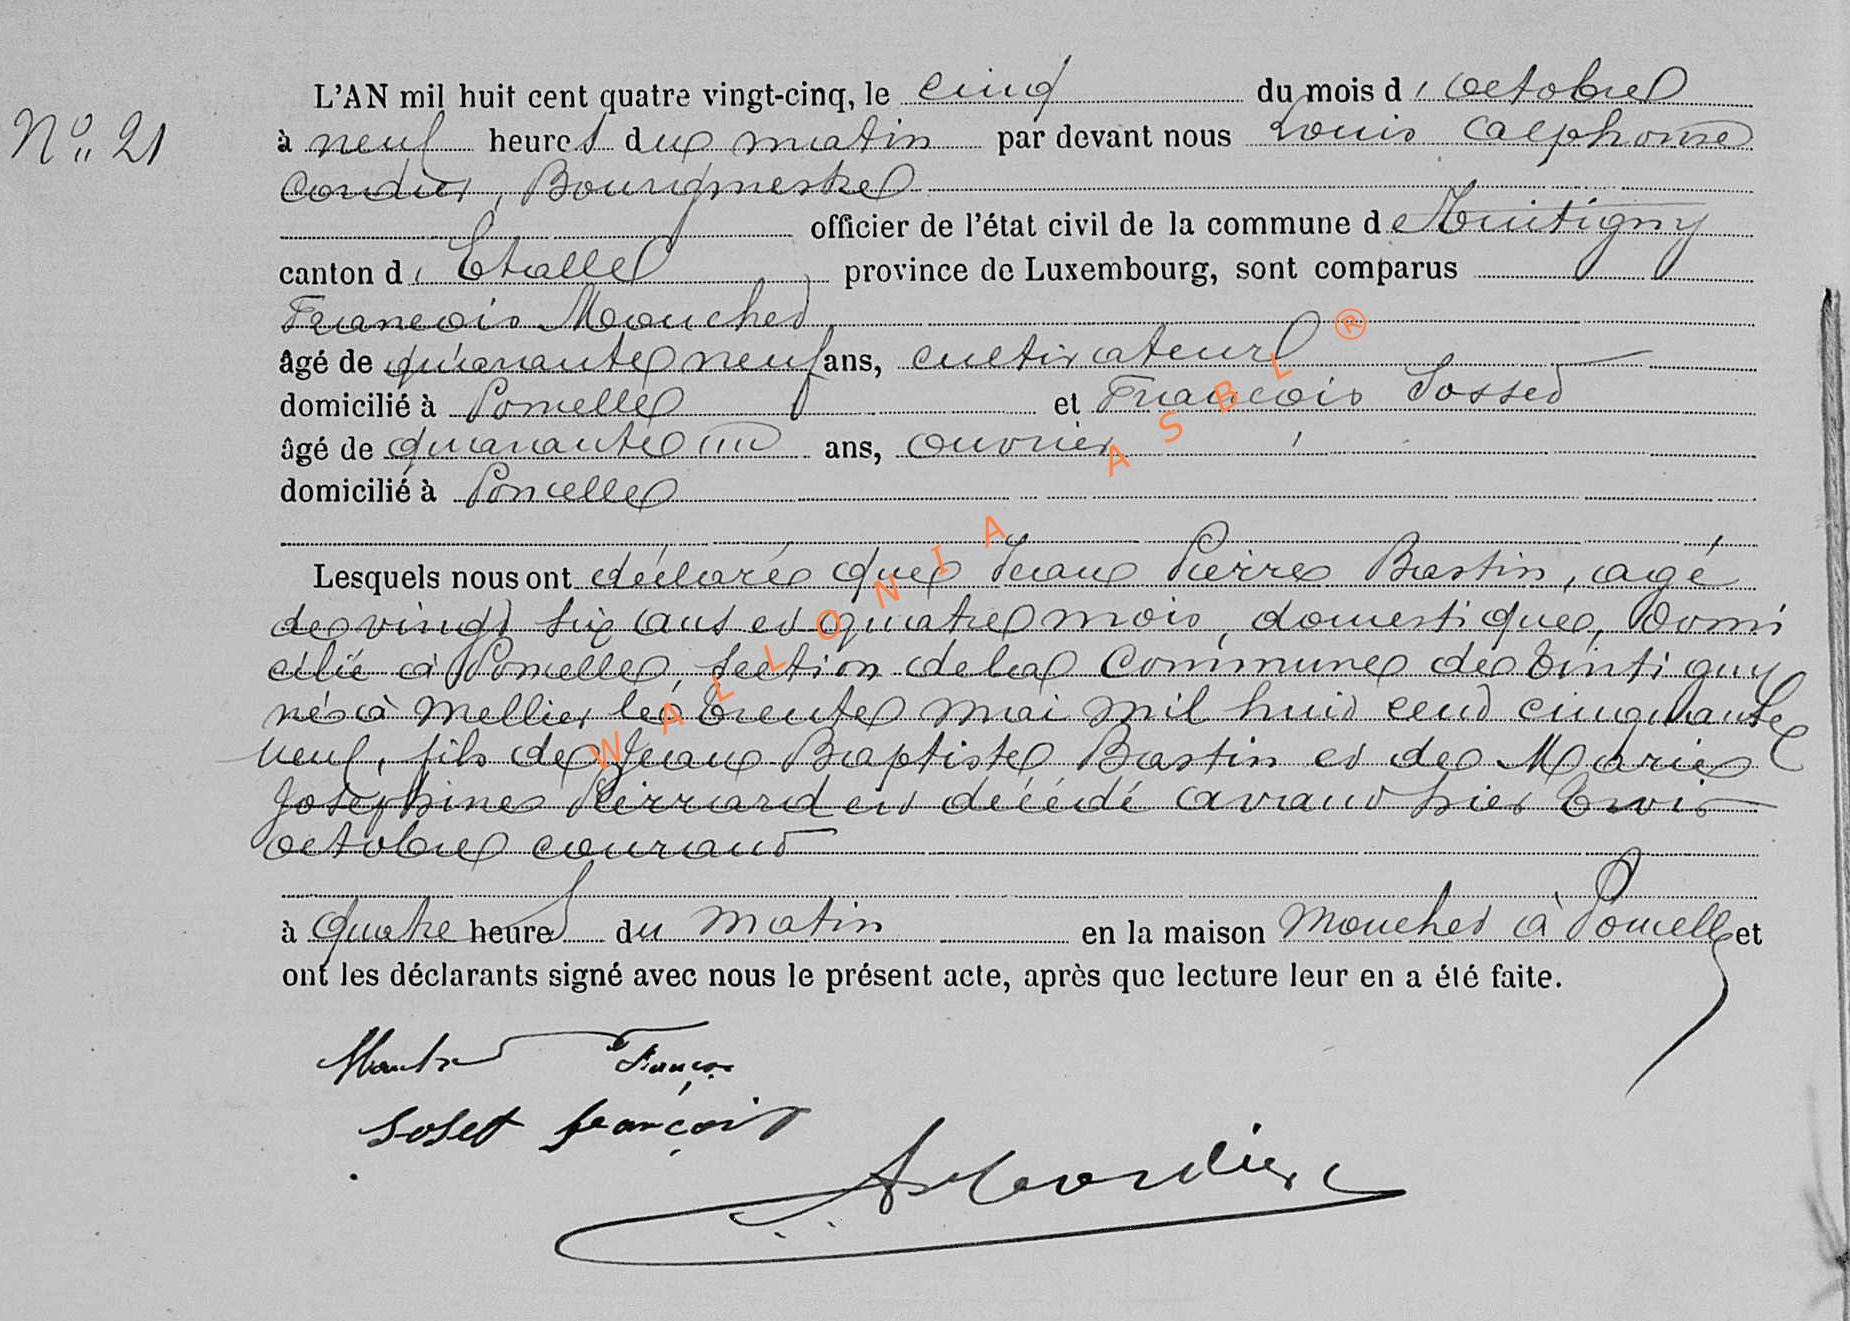 No 21
L'AN mil huit cent quatre vingt-cinq, le cinq du mois d'octobre
à neuf heures du matin par devant nous Louis Alphonse
Cordier, Bourgmestre
officier de l'état civil de la commune de Tintigny
canton d'Etalle province de Luxembourg, sont comparus
François Mouchet
âgé de quarante neuf ans, cultivateur
domicilié à Poncelle et François Sosset
âgé de quarante un ans, ouvrier
domicilié à Poncelle
Lesquels nous ont déclaré que Jean Pierre Bastin, agé
de vingt six ans et quatre mois, domestique, domi
cilié à Poncelle, section de la Commune de Tintigny
né à Mellier le trente mai mil huit cent cinquante
neuf, fils de Jean Baptiste Bastin et de Marie
Josephine Pierrard est décédé avant hier trois
octobre courant
à quatre heures du matin en la maison Mouchet à Poncelle et
ont les déclarants signé avec nous le présent acte, après que lecture leur en a été faite.
François
Soset françois
Cordier
WALLONIA ASBL ®